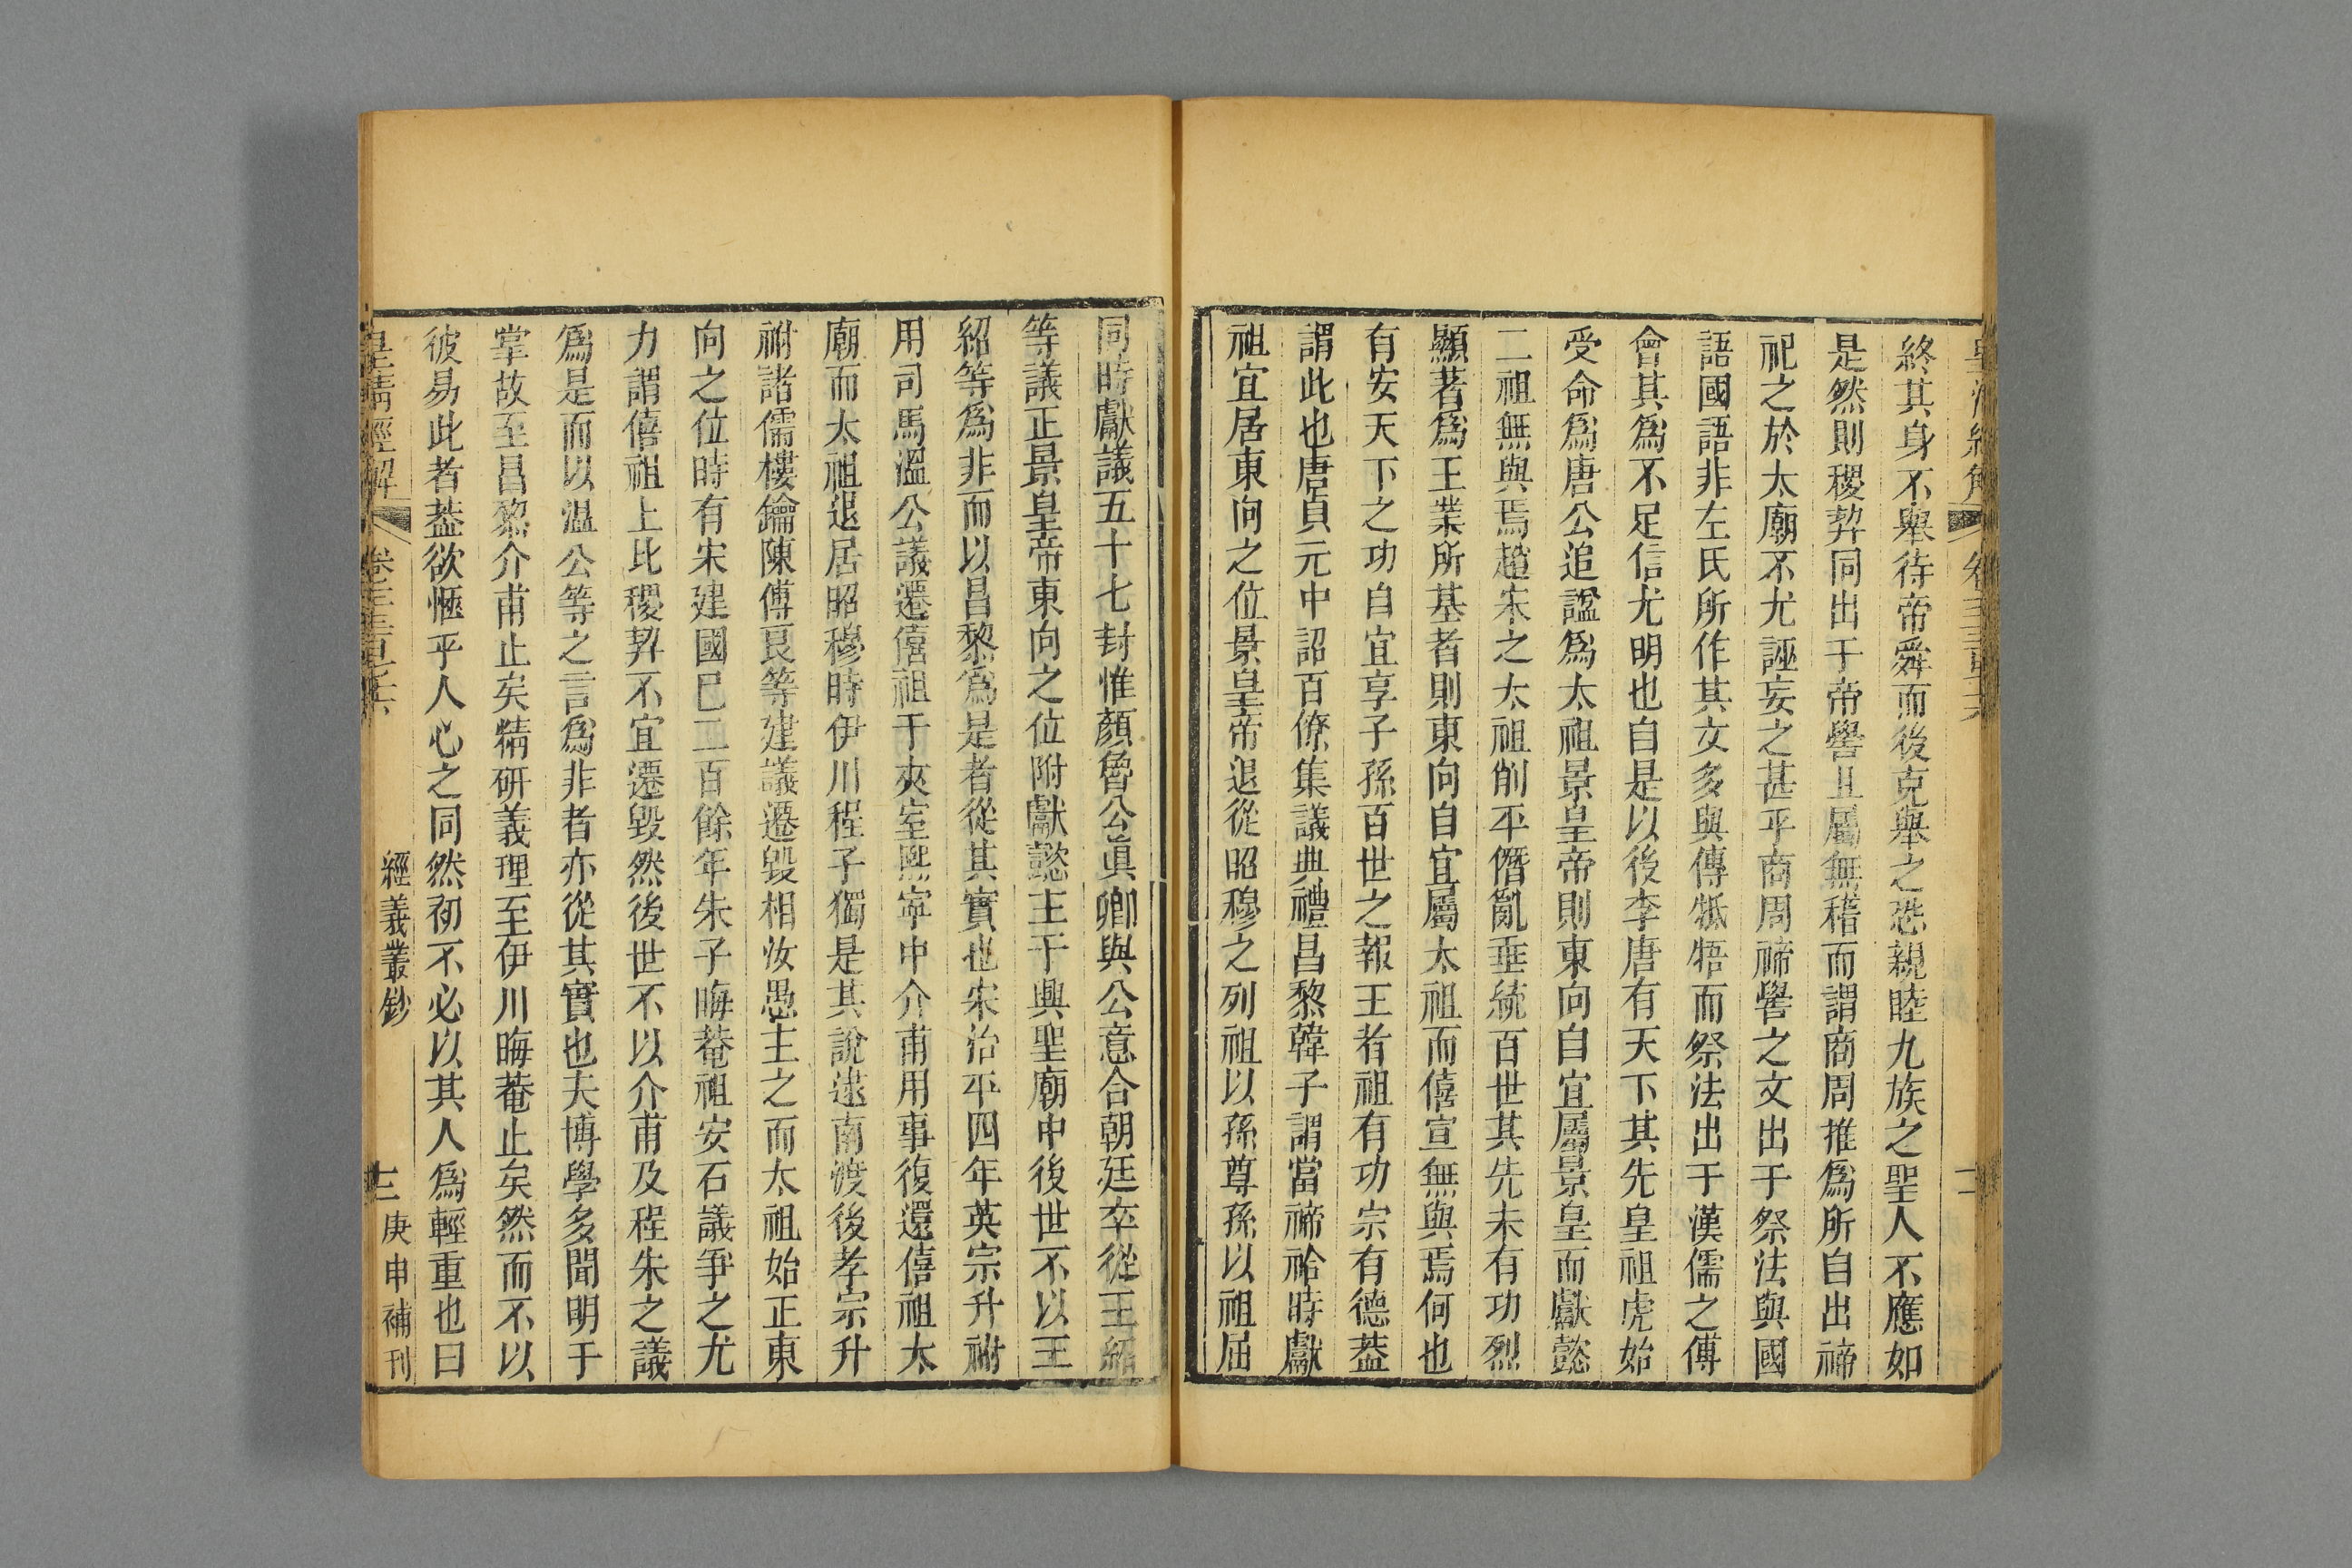 終其身不舉待帝舜而後克舉之恐親睦九族之聖人不應如
是然則稷契同出于帝嚳且屬無稽而謂商周推爲所自出禘
祀之於太廟不尤誣妄之甚乎商周禘嚳之文出于祭法與國
語國語非左氏所作其文多與傳牴牾而祭法出于漢儒之傅
會其爲不足信尤明也自是以後李唐有天下其先皇祖虎始
受命爲唐公追諡爲太祖景皇帝則東向自宜屬景皇而獻懿
二祖無與焉趙宋之太祖削平僭亂垂統百世其先未有功烈
顯著爲王業所基者則東向自宜屬太祖而僖宣無與焉何也
有安天下之功自宜享子孫百世之報王者祖有功宗有德葢
謂此也唐貞元中詔百僚集議典禮昌黎韓子謂當禘祫時獻
祖宜居東向之位景皇帝退從昭穆之列祖以孫尊孫以祖屈
同時獻議五十七封惟顏魯公眞卿與公意合朝廷卒從王紹
等議正景皇帝東向之位附獻懿主于興聖廟中後世不以王
紹等爲非而以昌黎爲是者從其實也宋治平四年英宗升祔
用司馬溫公議遷僖祖于夾室熙寧中介甫用事復還僖祖太
廟而太祖退居昭穆時伊川程子獨是其說逮南渡後孝宗升
祔諸儒樓鑰陳傅良等建議遷毀相汝愚主之而太祖始正東
向之位時有宋建國已二百餘年朱子晦菴祖安石議爭之尤
力謂僖祖上比稷契不宜遷毀然後世不以介甫及程朱之議
爲是而以溫公等之言爲非者亦從其實也夫博學多聞明于
掌故至昌黎介甫止矣精研義理至伊川晦菴止矣然而不以
彼易此者葢欲愜乎人心之同然初不必以其人爲輕重也曰
皇清經解
經義叢鈔
庚申補刊